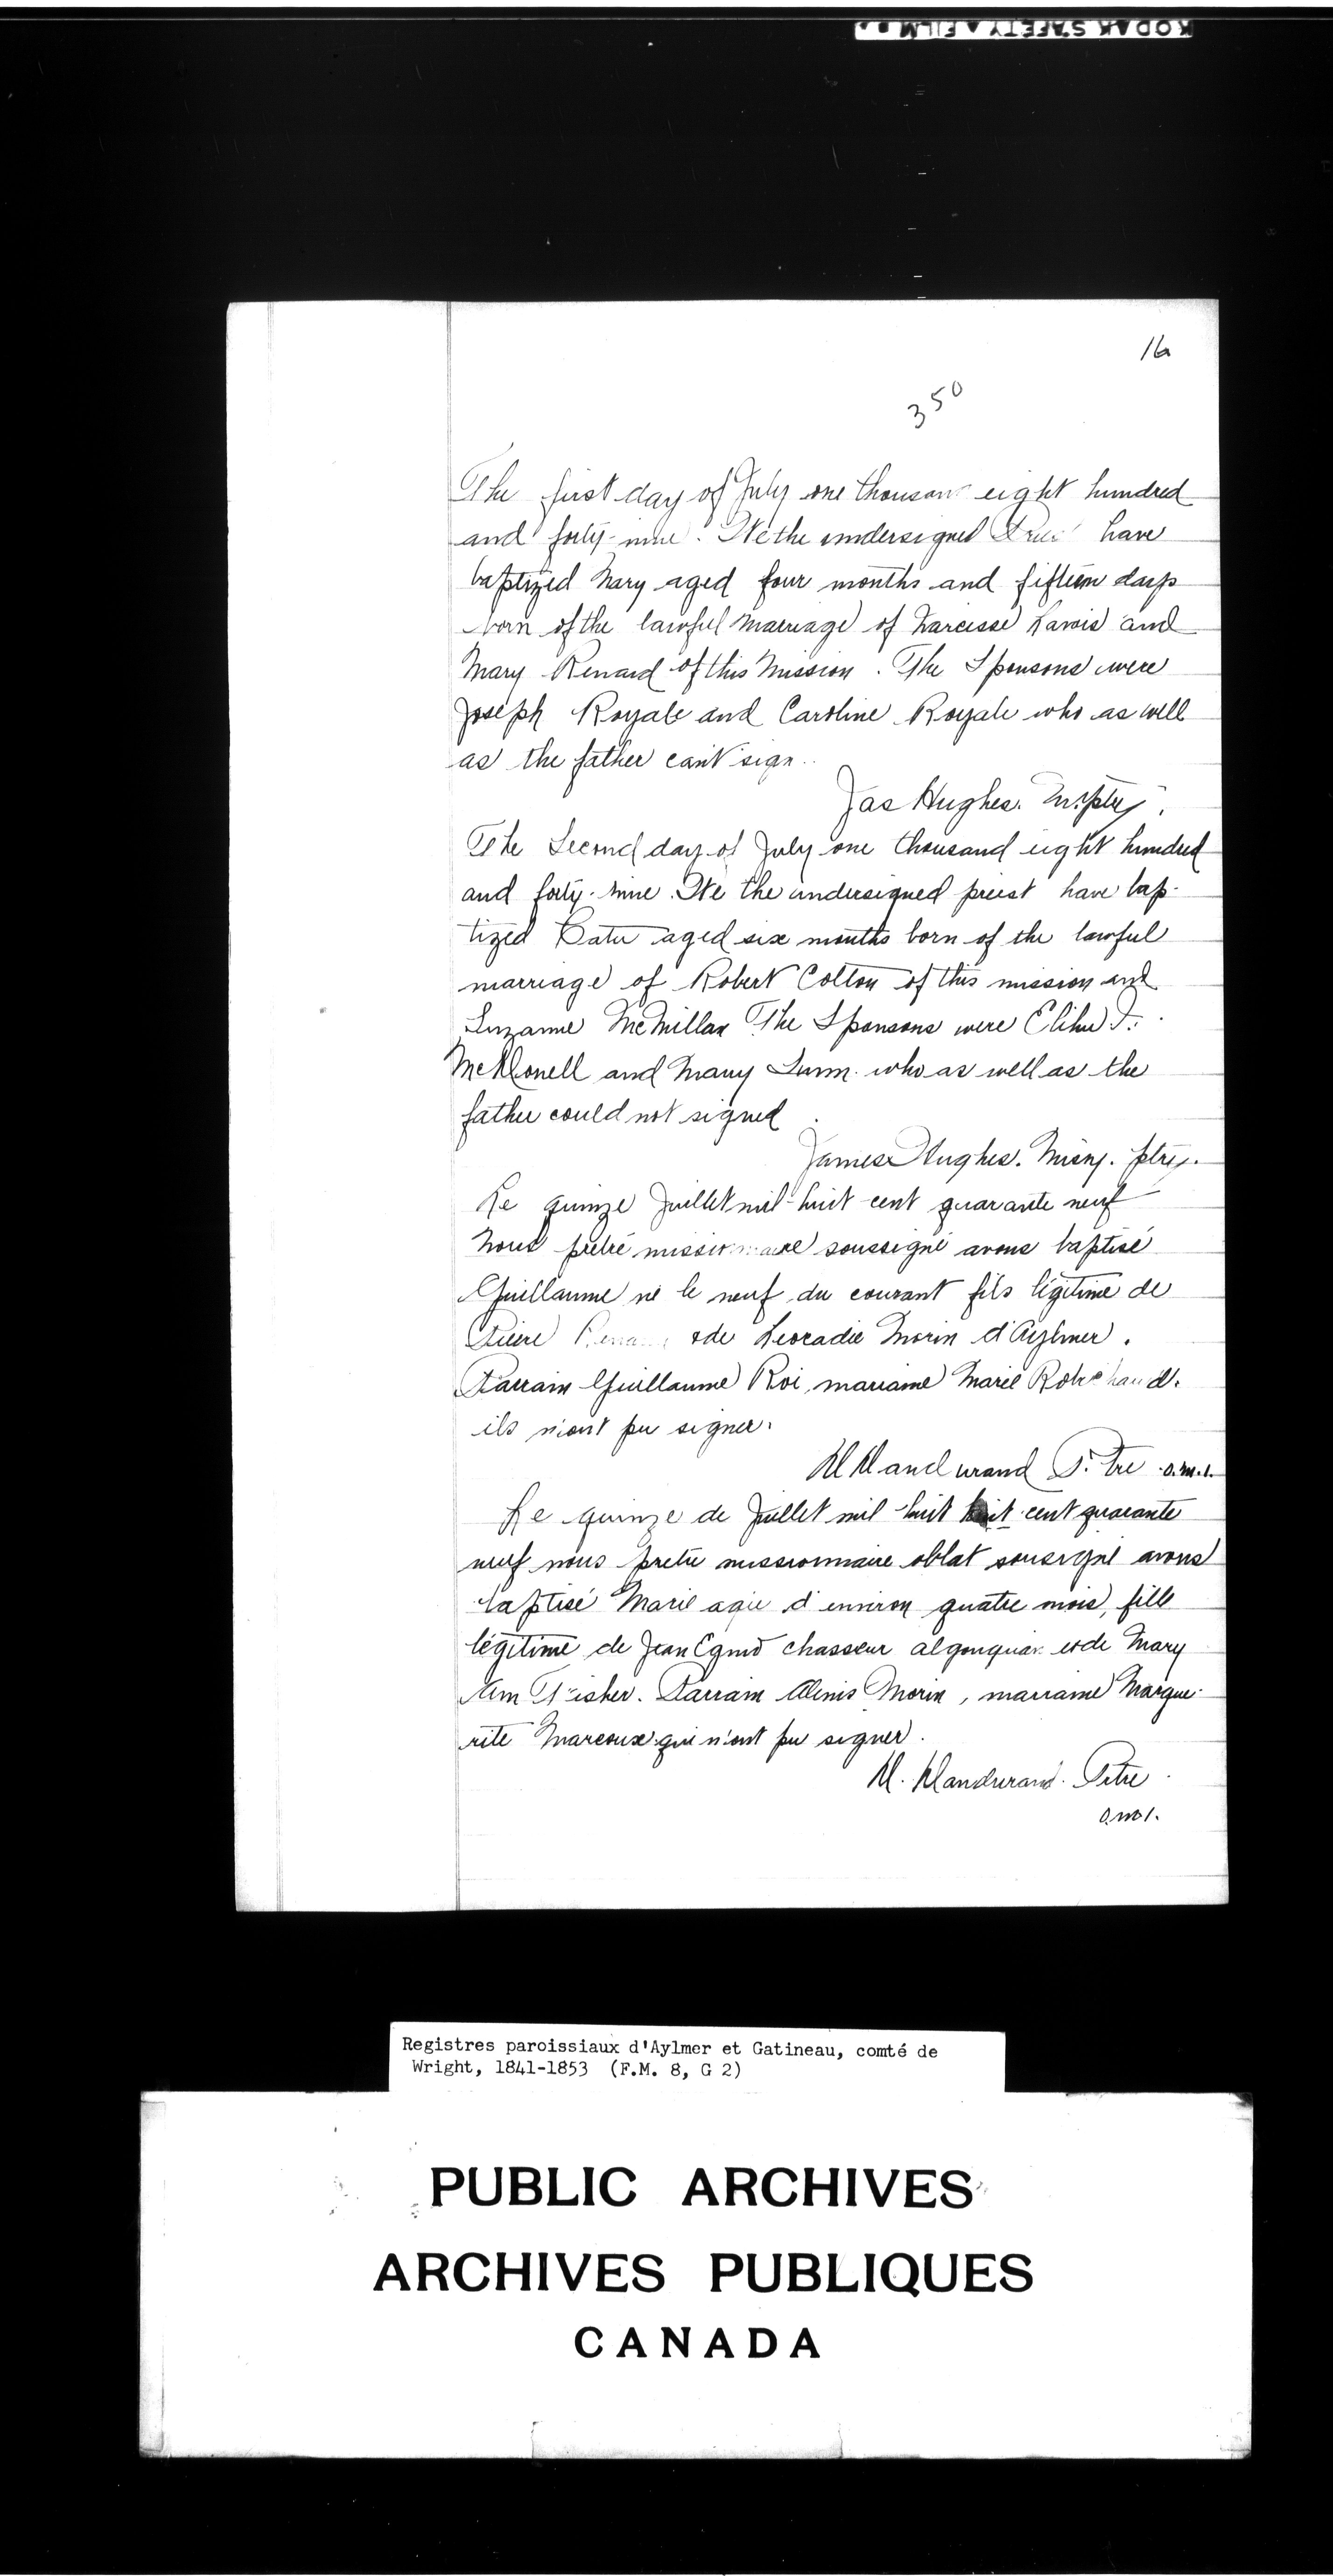 KODAK SAFETY FILM
16
350
The first day of July one thousand eight hundred
and forty-nine. We the undersigned have
baptized Mary aged four months and fifteen days
born of the lawful marriage of Narcisse and
Mary Renard of this Mission. The Sponsons were
Joseph Royale and Caroline Royale who as well
as the father can't sign.
Jas Hughes.
The Second day of July one thousand eight hundred
and forty-nine. We the undersigned priest have bap-
tized aged six months born of the lawful
marriage of Robert Colton of this mission and
Suzanne McMillan The Sponsons were Elihu
McDonell and Mary who as well as the
father could not signed
James Hughes. Misny. ptre.
Le quinze Juillet mil-huit-cent quarante neuf
Nous prêtre missionnaire soussigné avons baptisé
Guillaume né le neuf du courant fils légitime de
de Leocadie Morin d'Aylmer.
Parrain Guillaume Roi, marraine Marie Robichaud.
ils n'ont pu signer.
D Dandurand Ptre o.m.i.
Le quinze de Juillet mil huit huit cent quarante
neuf nous pretre missionnaire oblat sousigné avons
baptisé Marie agée d'environ quatre mois, fille
légitime de Jean chasseur algonquin et de Mary
Ann Fisher. Parrain Morin, marraine Margue-
rite Marcoux qui n'ont pu signer.
D. Dandurand. Ptre
o.m.i.
Registres paroissiaux d'Aylmer et Gatineau, comté de
Wright, 1841-1853 (F.M. 8, G 2)
PUBLIC ARCHIVES
ARCHIVES PUBLIQUES
CANADA